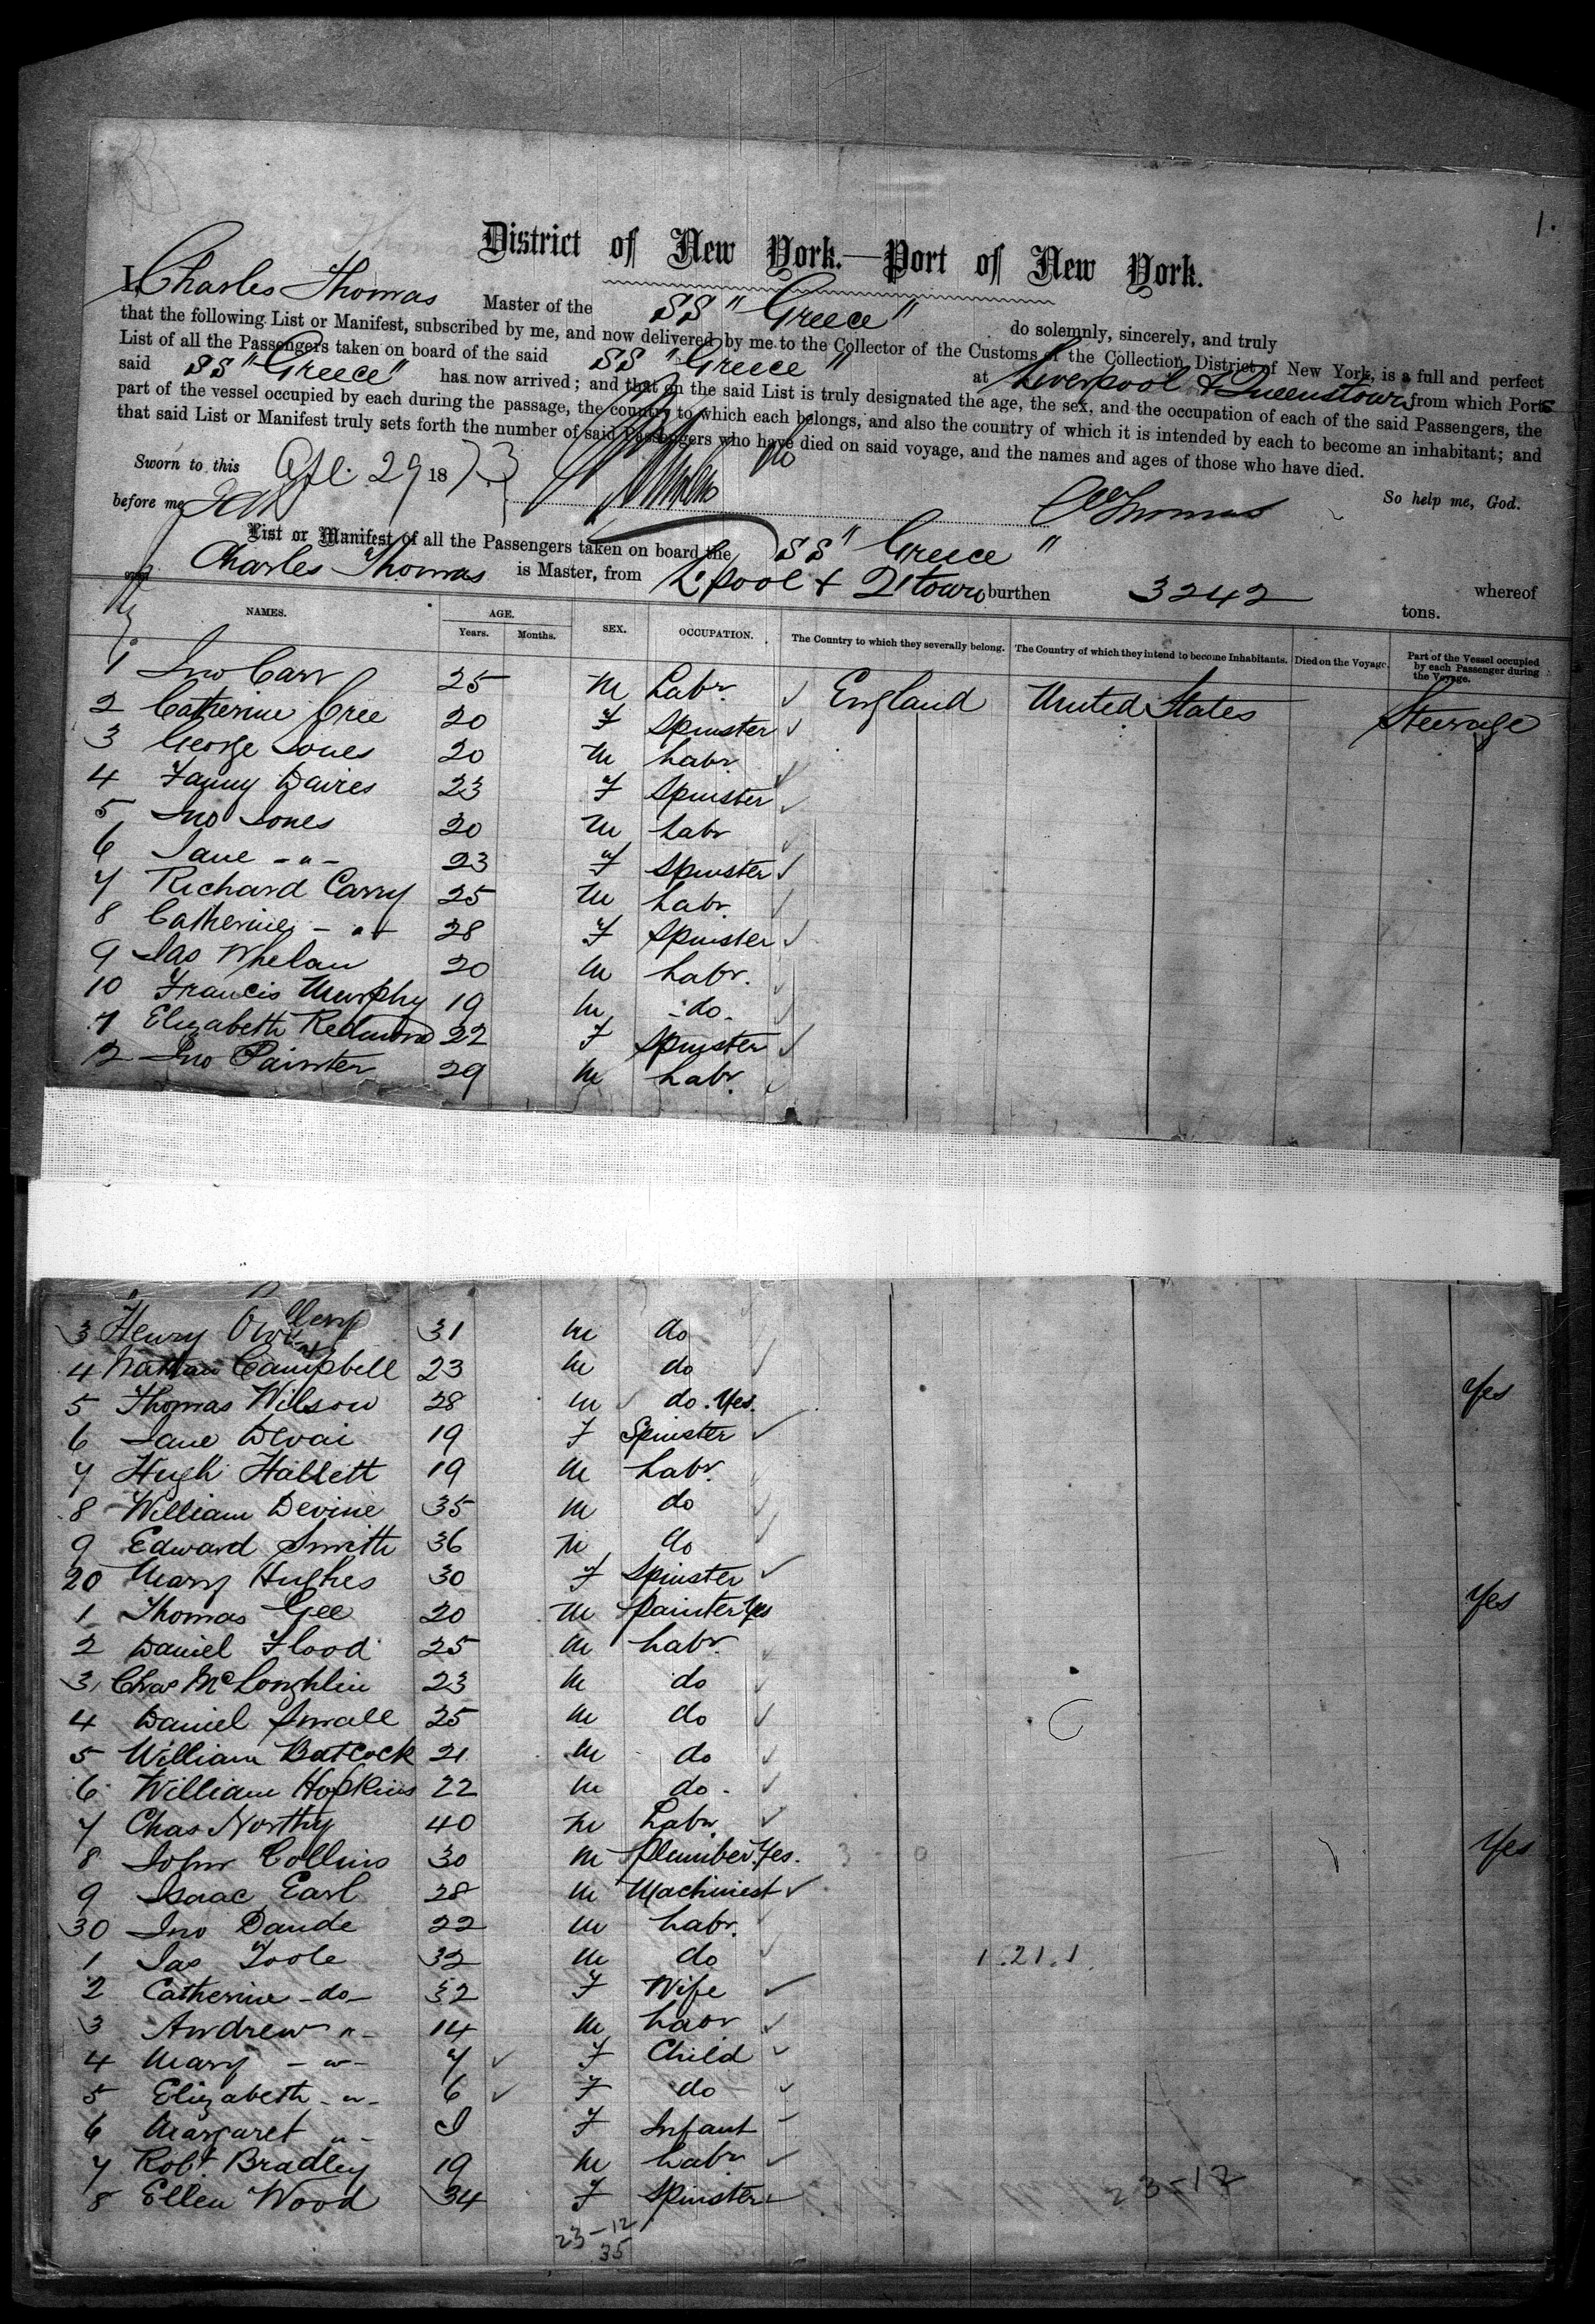 1.
District of New York.—Port of New York.
I, Charles Thomas Master of the SS "Greece" do solemnly, sincerely, and truly
that the following List or Manifest, subscribed by me, and now delivered by me to the Collector of the Customs of the Collection District of New York, is a full and perfect
List of all the Passengers taken on board of the said SS "Greece" at Liverpool & Queenstown from which Ports
said SS "Greece" has now arrived; and that on the said List is truly designated the age, the sex, and the occupation of each of the said Passengers, the
part of the vessel occupied by each during the passage, the country to which each belongs, and also the country of which it is intended by each to become an inhabitant; and
that said List or Manifest truly sets forth the number of said Passengers who have died on said voyage, and the names and ages of those who have died.
Sworn to this Apl. 29 1873 So help me, God.
before me C Thomas
List or Manifest of all the Passengers taken on board the SS "Greece" whereof
Charles Thomas is Master, from L'pool & Q'town burthen 3242 tons.
NAMES. AGE. Years. Months. SEX. OCCUPATION. The Country to which they severally belong. The Country of which they intend to become Inhabitants. Died on the Voyage. Part of the Vessel occupied by each Passenger during the Voyage.
1 Jno Carr 25 M Labr. England United States Steerage
2 Catherine Cree 20 F Spinster
3 George Jones 20 M Labr.
4 Fanny Davies 23 F Spinster
5 Jno Jones 20 M Labr
6 Jane -"- 23 F Spinster
7 Richard Carry 25 M Labr.
8 Catherine -"- 28 F Spinster
9 Jas Whelan 20 M Labr.
10 Francis Murphy 19 M -do-
1 Elizabeth Redmond 22 F Spinster
2 Jno Painter 29 M Labr.
3 Henry 31 M do
4 Nathan Campbell 23 M do
5 Thomas Wilson 28 M do. Yes. Yes
6 Jane 19 F Spinster
7 Hugh Hallett 19 M Labr.
8 William Devine 35 M do
9 Edward Smith 36 M do
20 Mary Hughes 30 F Spinster
1 Thomas Gee 20 M Painter Yes Yes
2 Daniel Flood 25 M Labr.
3 Chas McLoughlin 23 M do
4 Daniel Small 25 M do
5 William Batcock 21 M do
6 William Hopkins 22 M do -
7 Chas Northy 40 M Labr
8 John Collins 30 M Plumber Yes. Yes
9 Isaac Earl 28 M Machinist
30 Jno Daude 22 M Labr.
1 Jas Toole 32 M do 1.21.1
2 Catherine -do- 32 F Wife
3 Andrew "- 14 M Labr
4 Mary -"- 7 F Child
5 Elizabeth -"- 6 F do
6 Margaret "- I F Infant
7 Robt. Bradley 19 M Labr
8 Ellen Wood 34 F Spinster
23-17
23-12
35